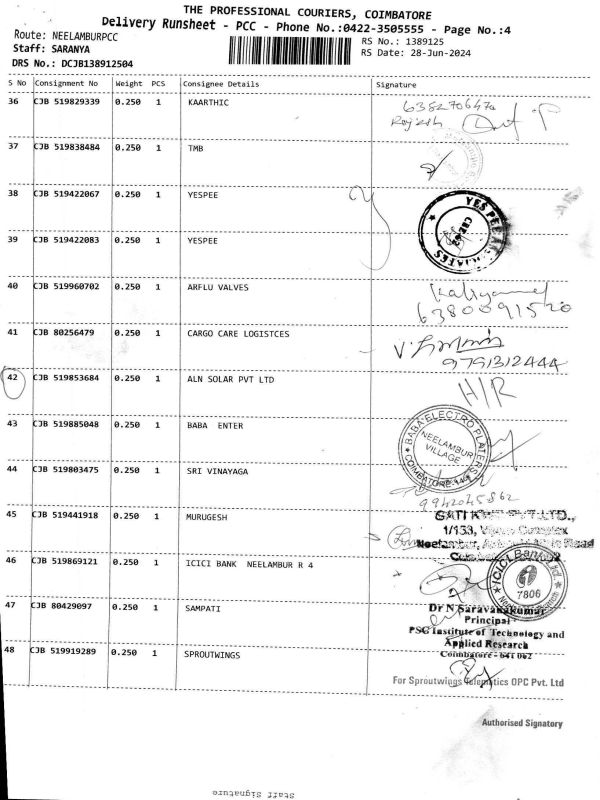 THE PROFESSIONAL COURIERS, COIMBATORE
Delivery Runsheet - PCC - Phone No.:0422-3505555 - Page No.:4
Route: NEELAMBURPCC
RS No.: 1389125
Staff: SARANYA
RS Date: 28-Jun-2024
DRS No.: DCJB138912504
S No Consignment No Weight PCS Consignee Details Signature
36 CJB 519829339 0.250 1 KAARTHIC
37 CJB 519838484 0.250 1 TMB
38 CJB 519422067 0.250 1 YESPEE
YES PEE
CBE-62
39 CJB 519422083 0.250 1 YESPEE
40 CJB 519960702 0.250 1 ARFLU VALVES
6380091520
41 CJB 80256479 0.250 1 CARGO CARE LOGISTCES
9791312444
42 CJB 519853684 0.250 1 ALN SOLAR PVT LTD
H/R
43 CJB 519885048 0.250 1 BABA ENTER
BABA ELECTRO PLATERS
NEELAMBUR
VILLAGE
COIMBATORE
44 CJB 519803475 0.250 1 SRI VINAYAGA
9942045862
45 CJB 519441918 0.250 1 MURUGESH
GATI PVT.LTD.,
1/133,
Neelambur, Road
46 CJB 519869121 0.250 1 ICICI BANK NEELAMBUR R 4
ICICI Bank Ltd
7806
47 CJB 80429097 0.250 1 SAMPATI
Dr N Saravanakumar
Principal
PSG Institute of Technology and
Applied Research
Coimbatore - 641 062
48 CJB 519919289 0.250 1 SPROUTWINGS
For Sproutwings Telematics OPC Pvt. Ltd
Authorised Signatory
Staff Signature